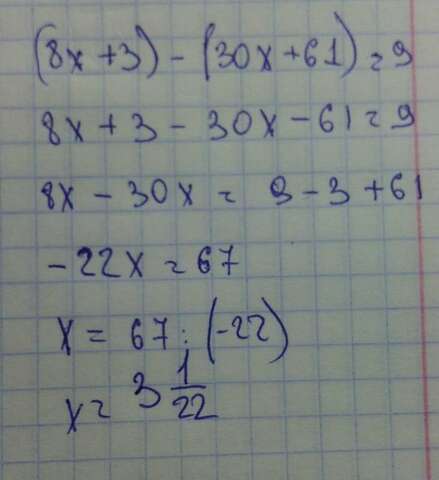 (8x+3) - (30x+61) = 9
8x + 3 - 30x - 61 = 9
8x - 30x = 9 - 3 + 61
-22x = 67
x = 67 : (-22)
x = 3 1/22